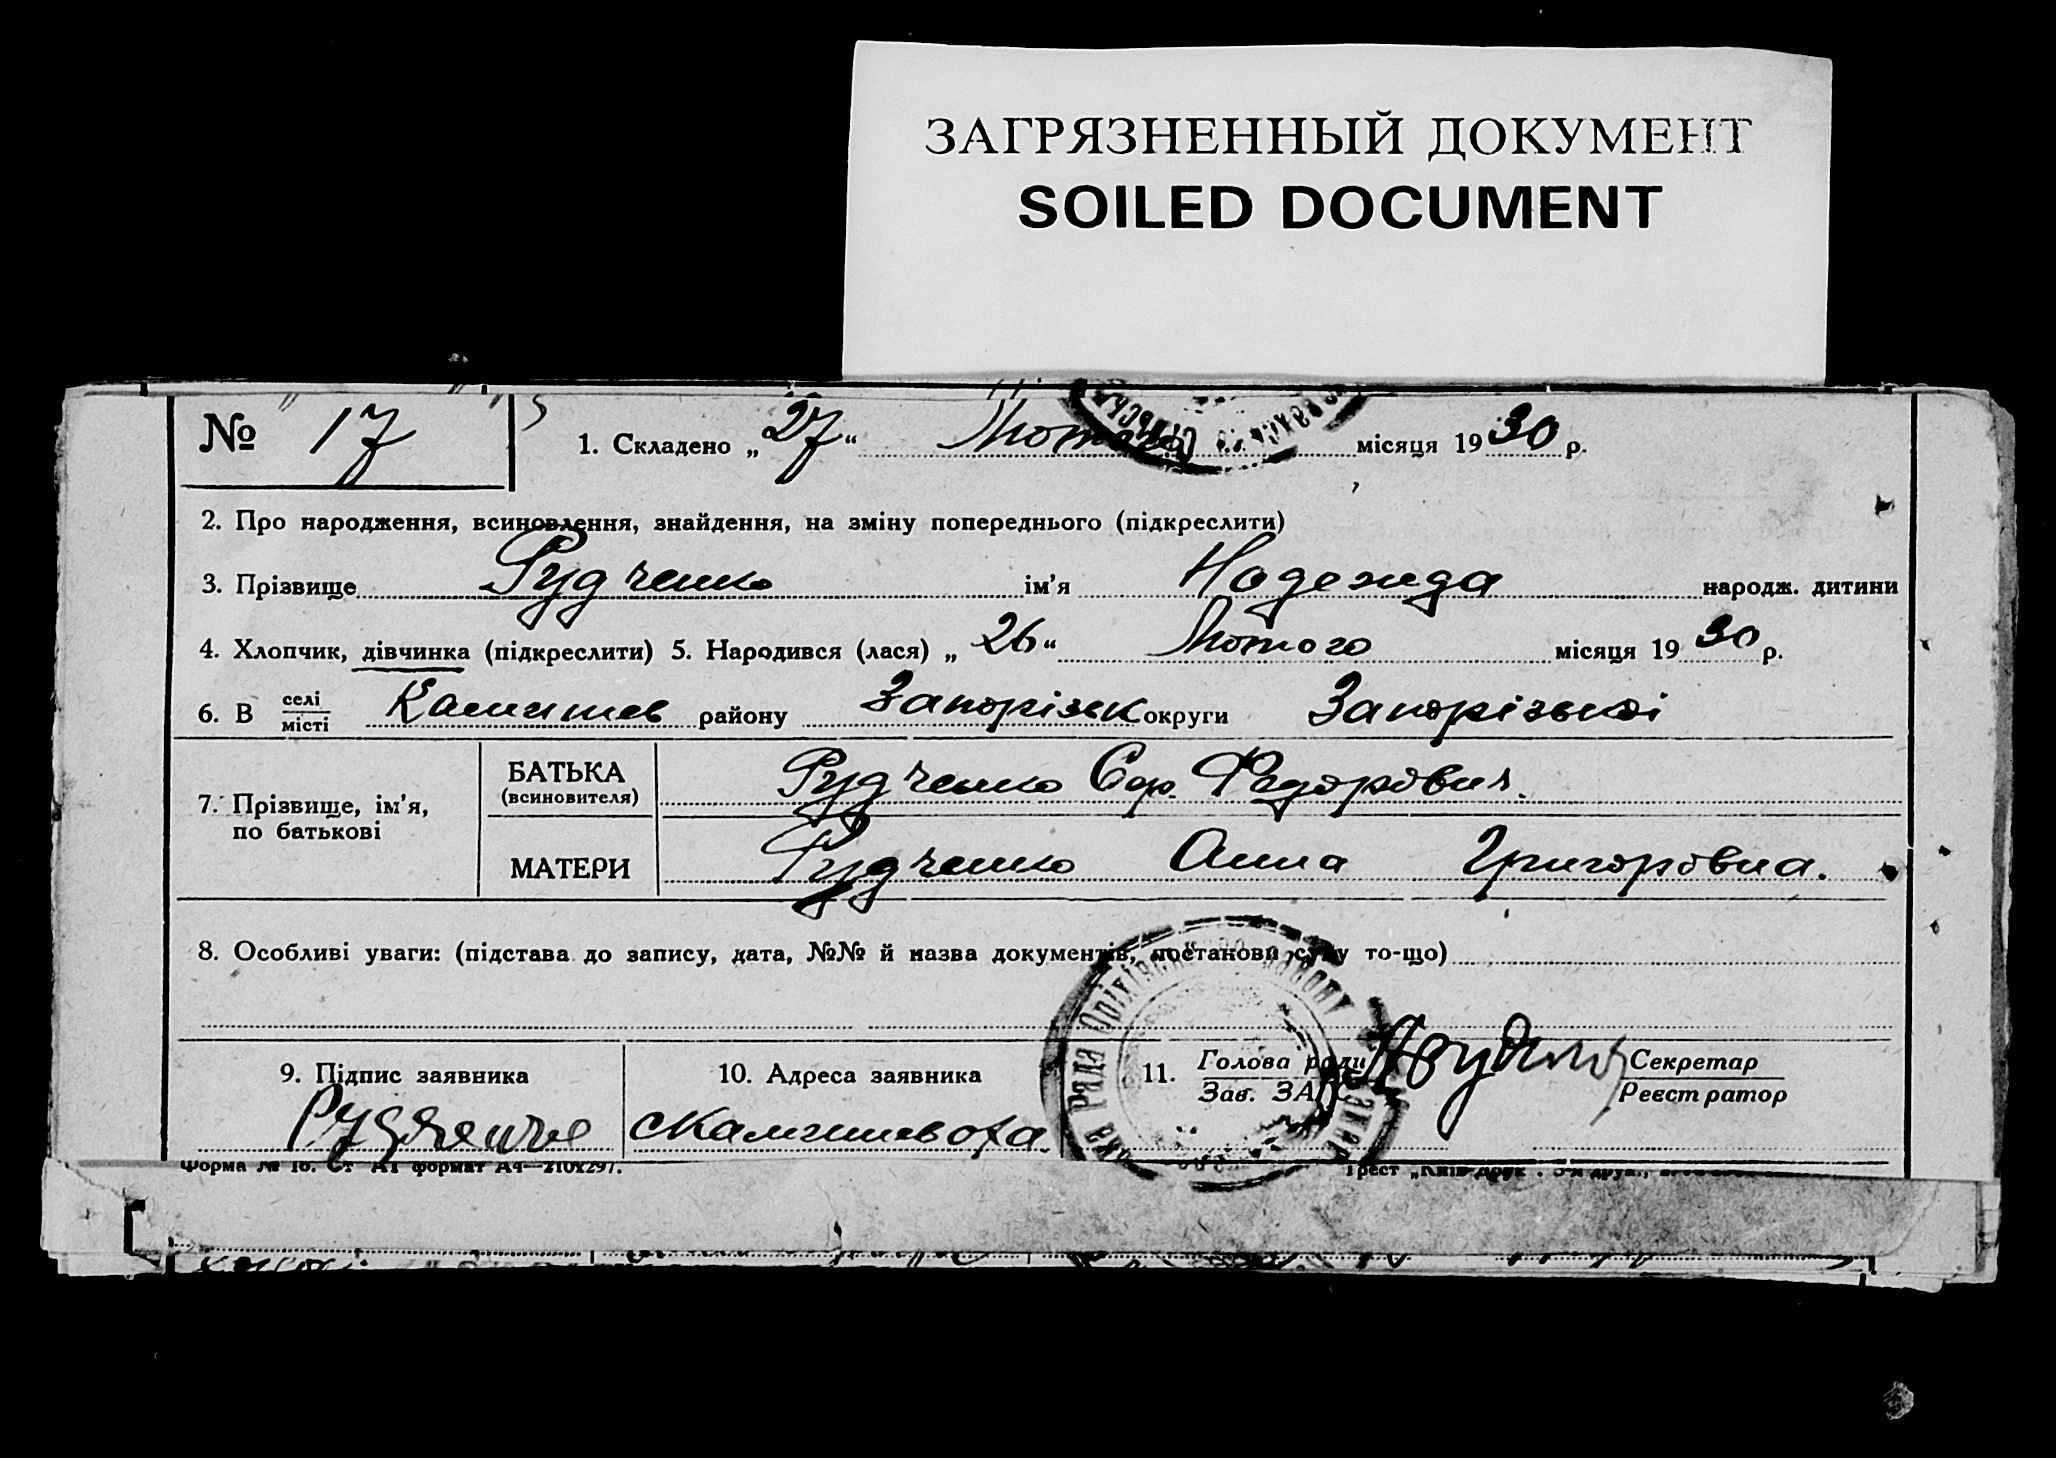 ЗАГРЯЗНЕННЫЙ ДОКУМЕНТ
SOILED DOCUMENT
№ 17
1. Складено „27“ Лютого місяця 1930 р.
2. Про народження, всиновлення, знайдення, на зміну попереднього (підкреслити)
3. Прізвище Рудченко ім'я Надежда народж. дитини
4. Хлопчик, дівчинка (підкреслити) 5. Народився (лася) „26“ Лютого місяця 1930 р.
6. В селі місті Камишев району Запорізьк округи Запорізької
7. Прізвище, ім'я, по батькові
БАТЬКА (всиновителя) Рудченко Сер. Федорович.
МАТЕРИ Рудченко Анна Григоровна.
8. Особливі уваги: (підстава до запису, дата, №№ й назва документів, постанови суду то-що)
9. Підпис заявника
Рудченко
10. Адреса заявника
Камишеваха
11. Голова ради Зав. ЗАГС
Секретар Реєстратор
Рада Оріхівськ району
Форма № 1б. Ст А1 формат А4—210х297.
Трест „Київ-Друк“. 3-я друк.,